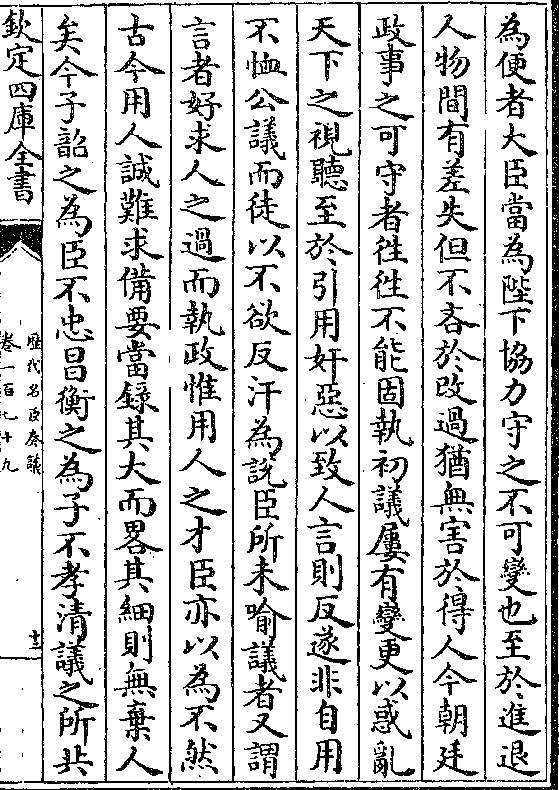 為便者大臣當為陛下協力守之不可變也至於進退
人物間有差失但不吝於改過猶無害於得人今朝廷
政事之可守者徃徃不能固執初議屢有變更以惑亂
天下之視聽至於引用奸惡以致人言則反遂非自用
不恤公議而徒以不欲反汗為說臣所未喻議者又謂
言者好求人之過而執政惟用人之才臣亦以為不然
古今用人誠難求備要當錄其大而畧其細則無棄人
矣今子韶之為臣不忠昌衡之為子不孝清議之所共
欽定四庫全書
歷代名臣奏議
卷一百九十九
十三